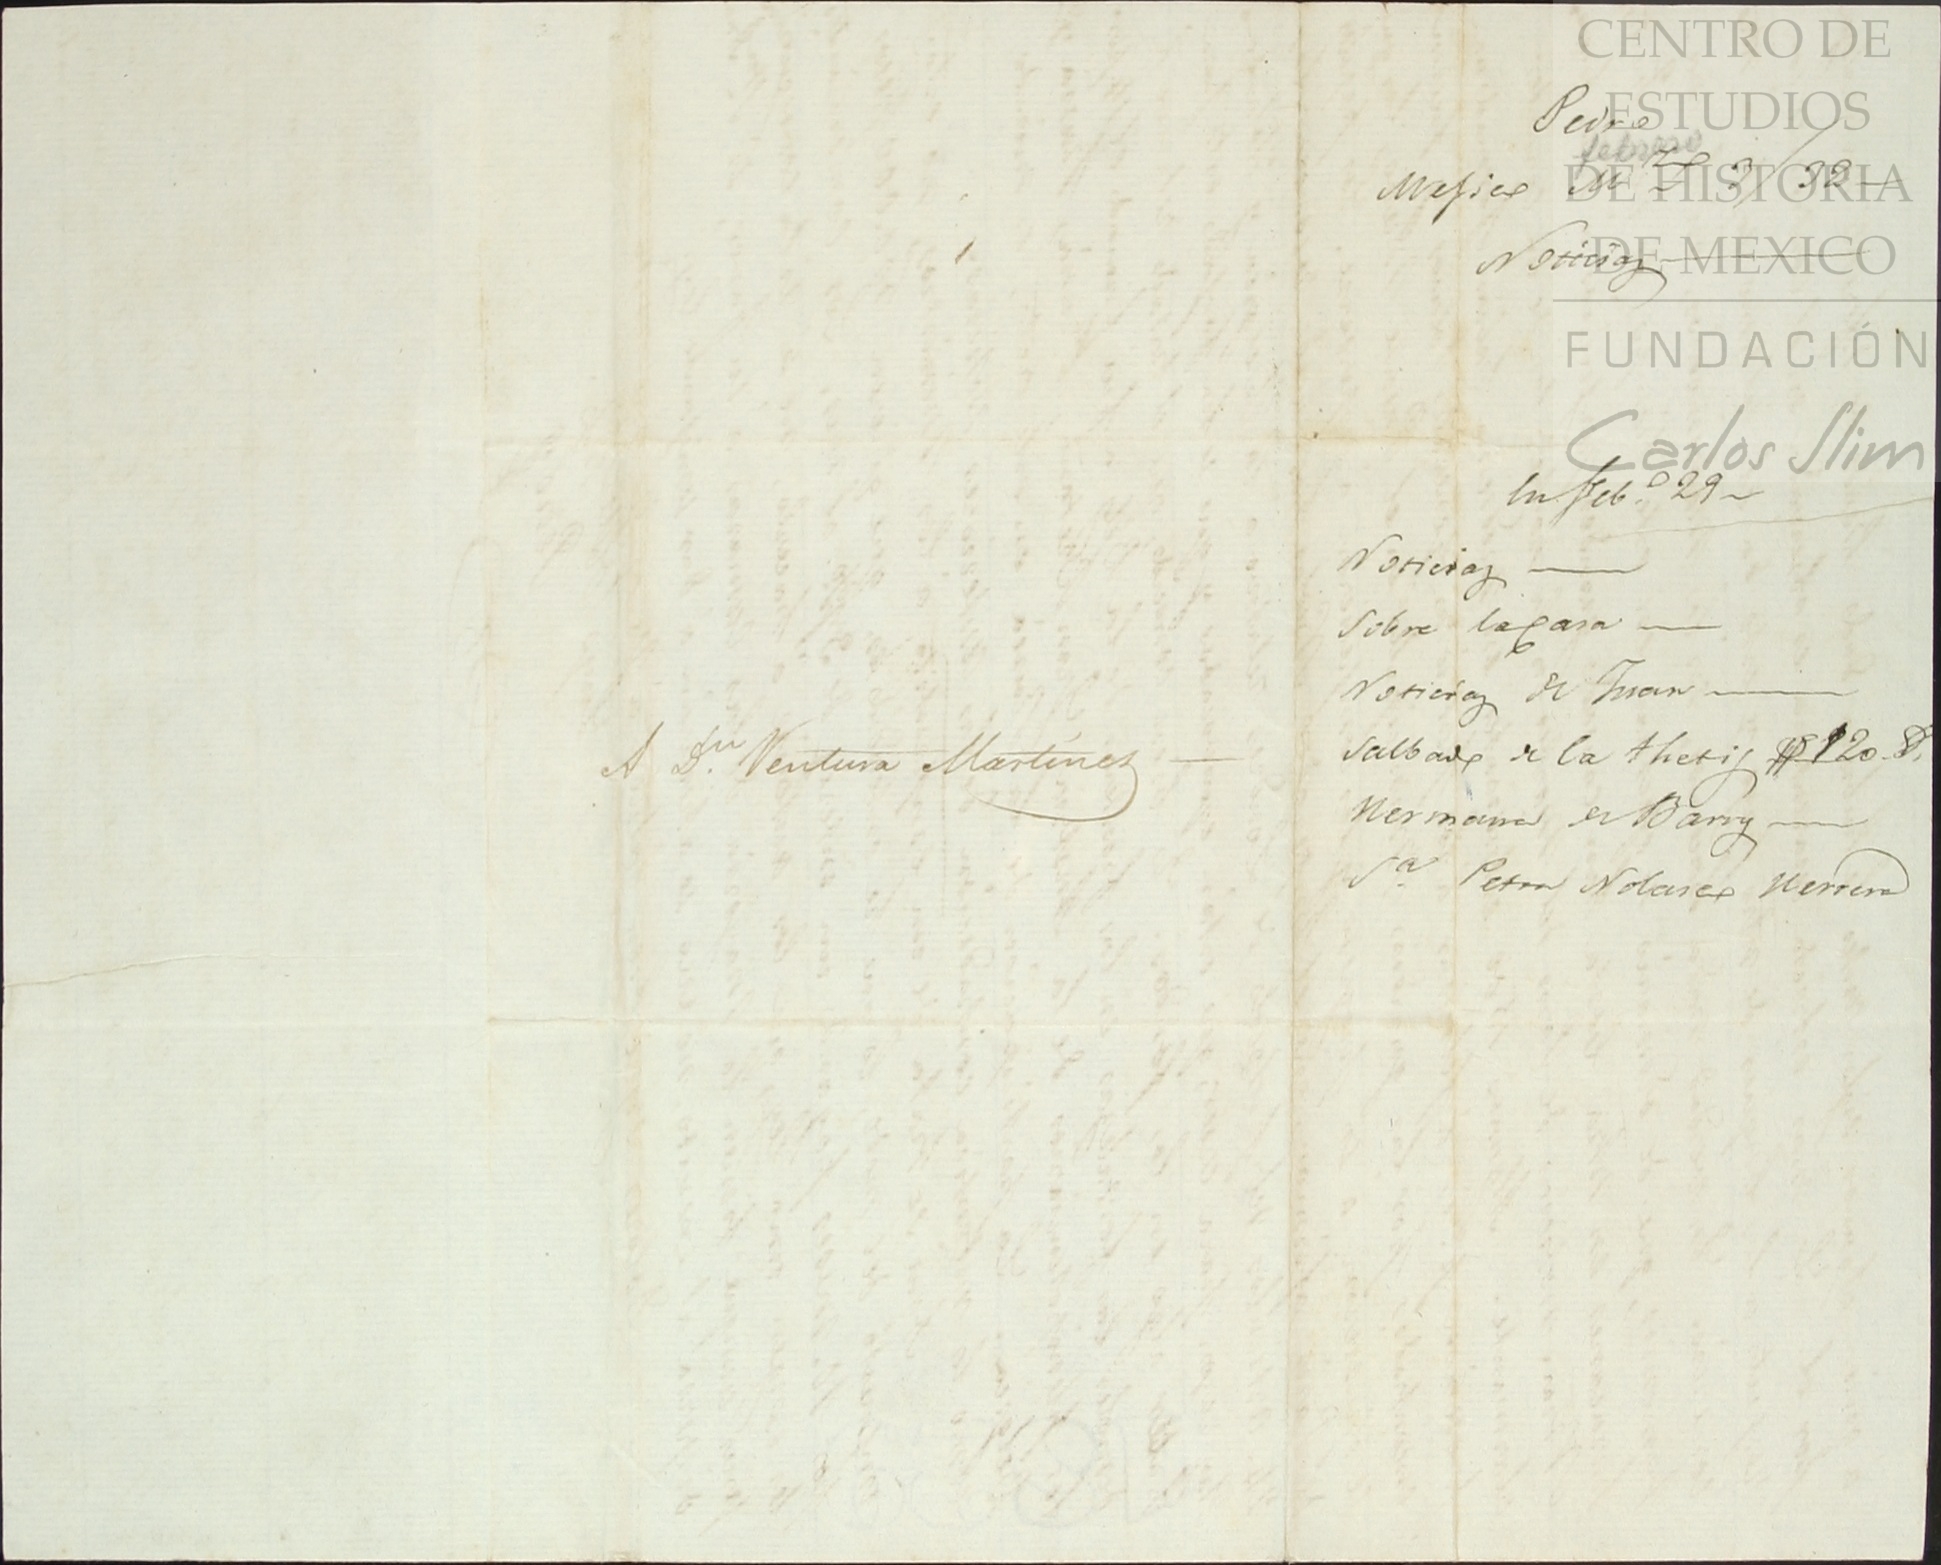 CENTRO DE
ESTUDIOS
DE HISTORIA
DE MEXICO
FUNDACIÓN
Carlos Slim
Pedro
febrero
Mexico M 3/32
Noticias
En Feb.o 29
Noticias
Sobre la Casa
Noticias de Juan
Salbado de la thetis $ 120 P.
Hermana de Barry
Sa. Petra Nolasco Herrera
A Dn. Ventura Martínez